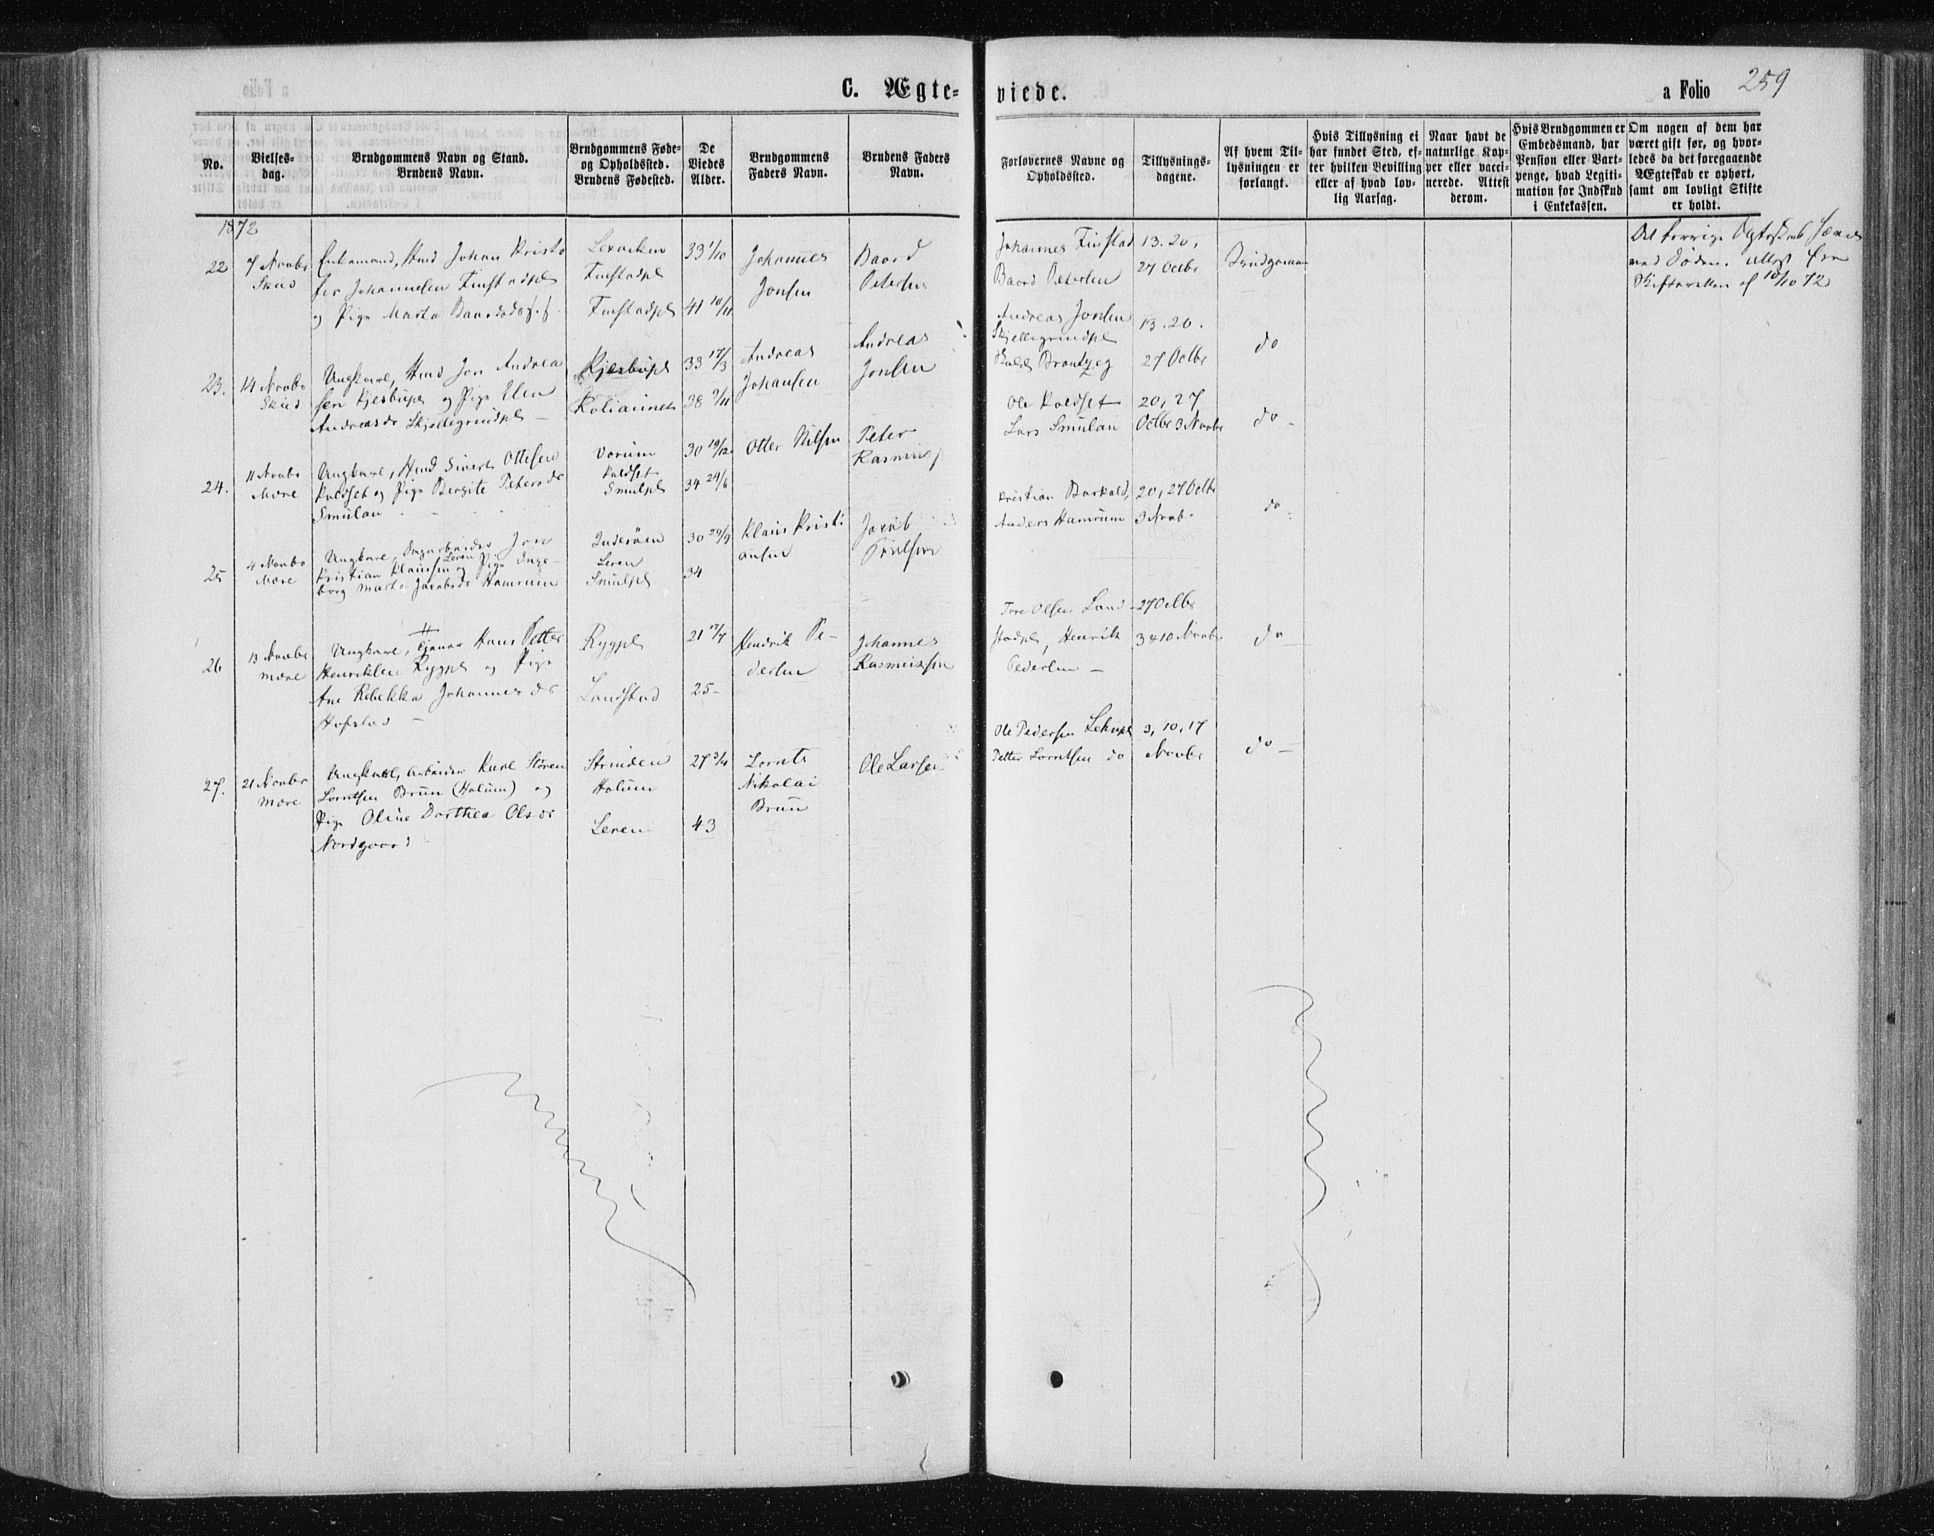 C. Ægte-
viede.
a Folio 259
No.
Vielses-
dag.
Brudgommens Navn og Stand.
Brudens Navn.
Brudgommens Føde-
og Opholdssted.
Brudens Fødested.
De
Viedes
Alder.
Brudgommens
Faders Navn.
Brudens Faders
Navn.
Forlovernes Navne og
Opholdssted.
Tillysnings-
dagene.
Af hvem Til-
lysningen er
forlangt.
Hvis Tillysning ei
har fundet Sted, ef-
ter hvilken Bevilling
eller af hvad lov-
lig Aarsag.
Naar havt de
naturlige Kop-
per eller vacci-
nerede. Attest
derom.
Hvis Brudgommen er
Embedsmand, har
Pension eller Vart-
penge, hvad Legiti-
mation for Indskud
i Enkekassen.
Om nogen af dem har
været gift før, og hvor-
ledes da det foregaaende
Ægteskab er ophørt,
samt om lovligt Skifte
er holdt.
1872
22
7 Novbr
Enkemand, Huusmd Johan Kristo
fer Johannesen Finstadpl
og Pige Marta Baardsd
Lexviken
Finstadpl
Finstadpl
33 1/10
41 10/11
Johannes
Jonsen
Baard
Petersen
Johannes Finstad
Baard Petersen
13. 20.
27 Octbr
Brudgommen
med Døden. Attest fra
Skifteretten af 10/10 72
23.
14 Novbr
Ungkarl, Huusmd Jon Andrea
sen Kjesbupl og Pige Elen
Andreasdr Skjellegrindpl
Kjesbupl
33 17/3
38 9/11
Andreas
Johansen
Andreas
Jonsen
Andreas Jonsen
Skjellegrindpl
13. 20.
27 Octbr
do
24.
11 Novbr
Mære
Ungkarl, Huusmd Sivert Ottesen
Koldset og Pige Bergite Petersdr
Smulan
Vorum
Koldset
Smulpl
30 19/12
34 24/6
Otter Nilsen
Peter
Rasmus
Ole Koldset
Lars Smulan
20, 27
Octbr 3 Novbr
do
25
4 Novbr
Mære
Ungkarl, Dagarbeider Jon
Kristian Klausen Leren og Pige Inge-
borg Marta Jacobsdr Hamrum
Inderøen
Leren
Smulpl
30 29/9
34
Klaus Kristi
ansen
Jacob
Kristian Barkald,
Anders Hamrum
20, 27 Octbr
3 Novbr
do
26
13 Novbr
Mære
Ungkarl, Tjener Hans Petter
Henriksen Rygpl og Pige
Ane Rebekka Johannesdr
Hofstad
Rygpl
Landstad
21 17/7
25
Hendrik Pe-
dersen
Johannes
Rasmussen
Tore Olsen Land-
stadpl, Henrik
Pedersen
27 Octbr
3 & 10 Novbr
do
27.
21 Novbr
Mære
Ungkarl, Arbeider Karl Søren
Lorntsen Brun (Holum) og
Pige Oline Dorthea Olsdr
Nordgaard
Strinden
Holum
Leren
27 3/4
43
Lornts
Nikolai
Brun
Ole Larsen
Ole Pedersen
Petter Lorntsen do
3, 10, 17
Novbr
do